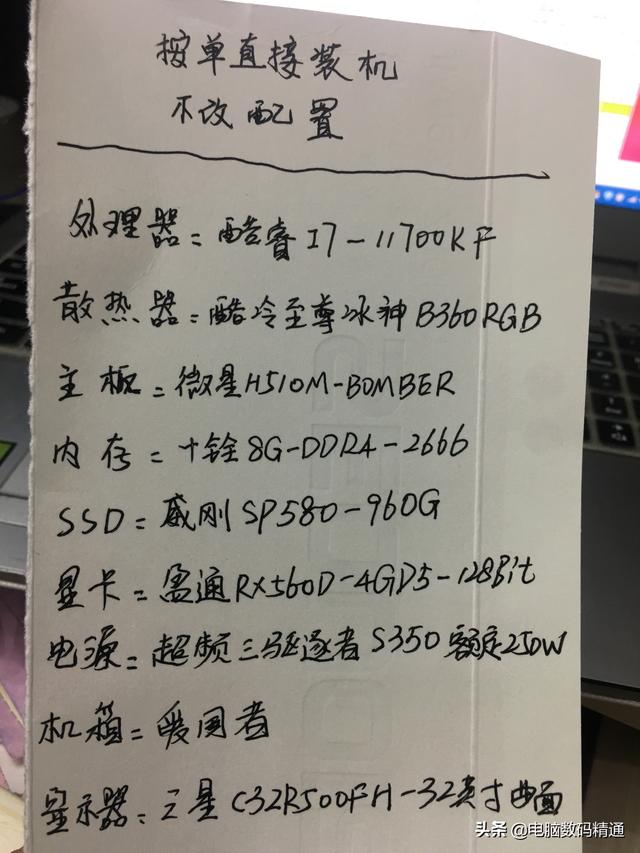 按单直接装机
不改配置
处理器=酷睿I7-11700KF
散热器=酷冷至尊冰神B360RGB
主板=微星H510M-BOMBER
内存=十铨8G-DDR4-2666
SSD=威刚SP580-960G
显卡=盈通RX560D-4GD5-128Bit
电源=超频三驱逐者S350额定250W
机箱=爱国者
显示器=三星C32R500FH-32英寸曲面
头条@电脑数码精通